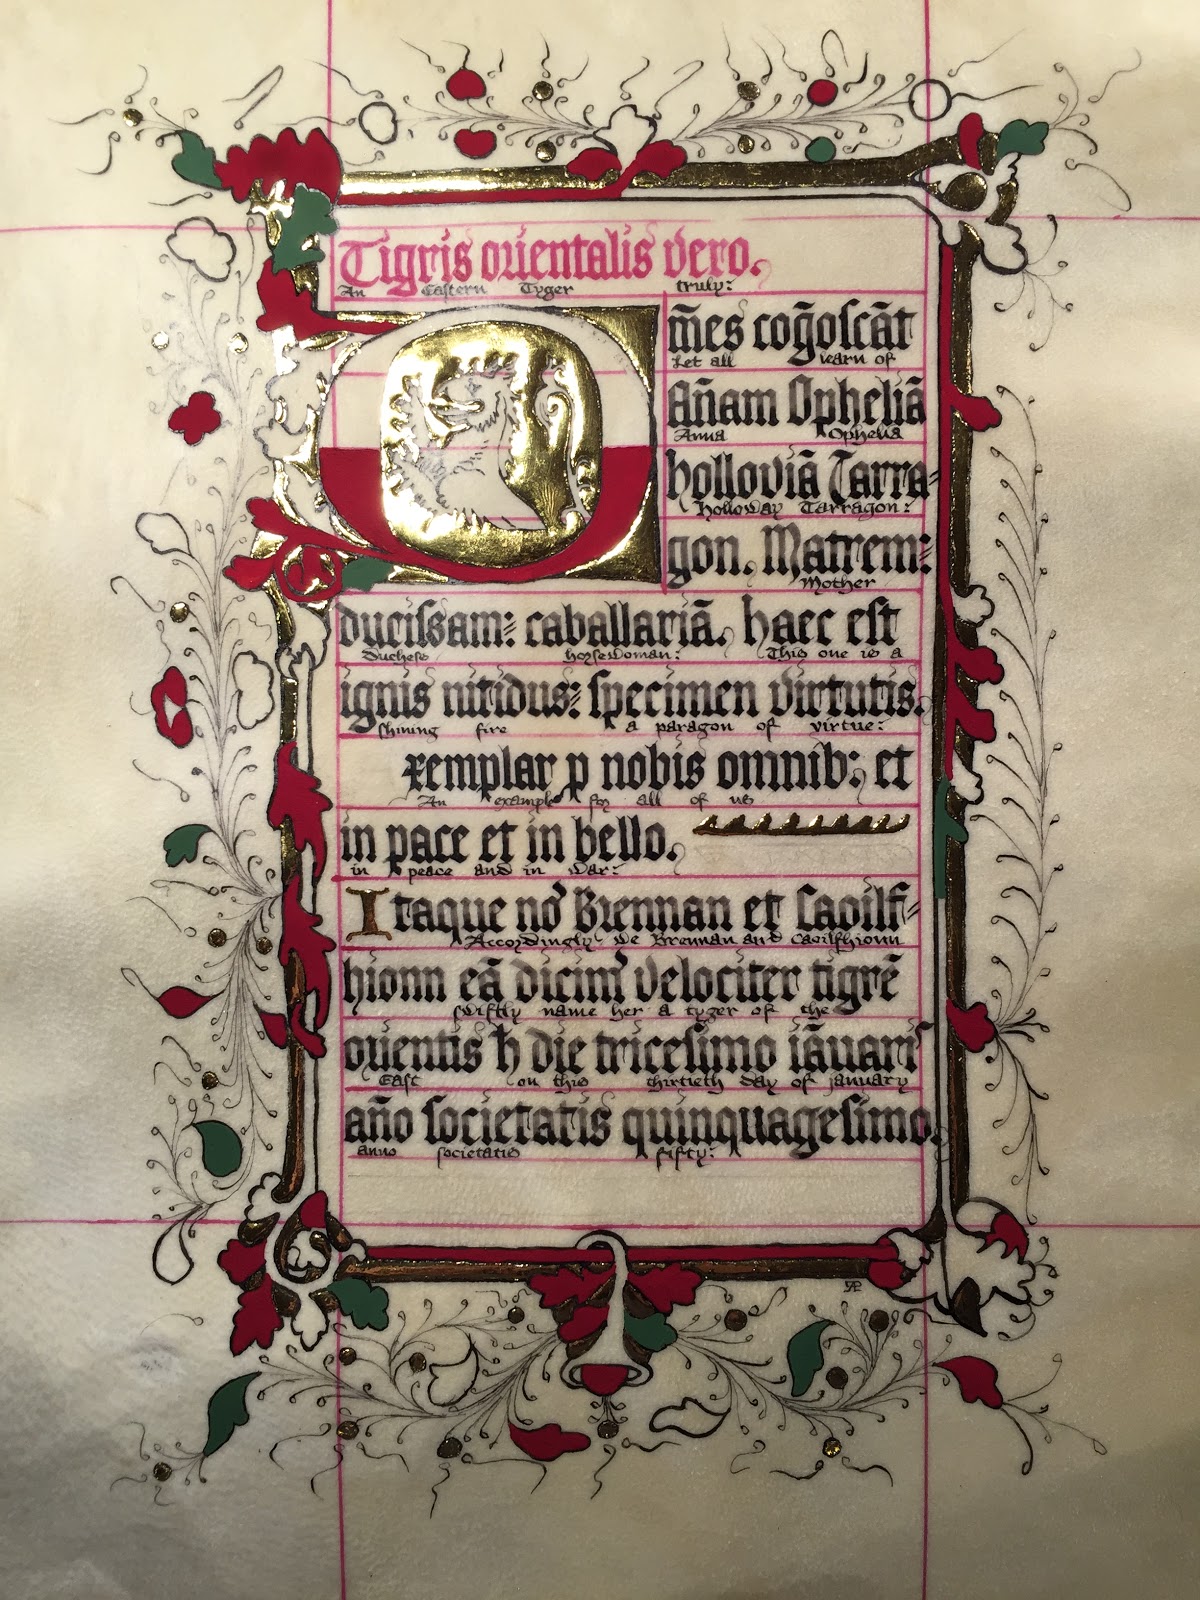 Tigris orientalis vero.
An Eastern Tyger truly:
Om̄es cog̃oscãt
Let all learn of
Añam Opheliã
Anna Ophelia
holloviã Tarra=
Holloway Tarragon:
gon. Matrem:
Mother
ducissam: caballariã. haec est
Duchess horsewoman: This one is a
ignis nitidus: specimen virtutis.
shining fire a paragon of virtue:
xemplar p nobis omnib: et
An example for all of us
in pace et in bello.
in peace and in war:
Itaque no᾽ Brennan et Caoilf=
Accordingly we Brennan and Caoilfhionn
hionn eã dicim᾽ velociter tigrẽ
swiftly name her a tyger of the
orientis h die tricesimo iãuari
East on this thirtieth day of january
añо societatis quinquagesimo.
anno societatis fifty: